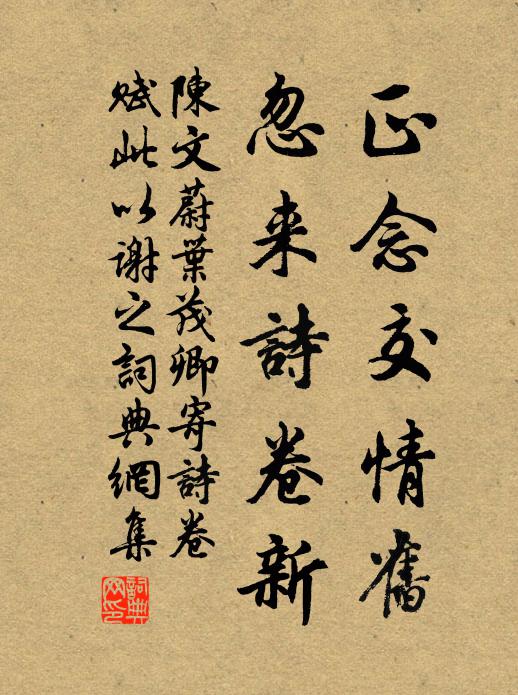 正念交情舊
忽来詩卷新
陳文蔚葉茂卿寄詩卷
賦此以謝之詞典網集
詞典網印